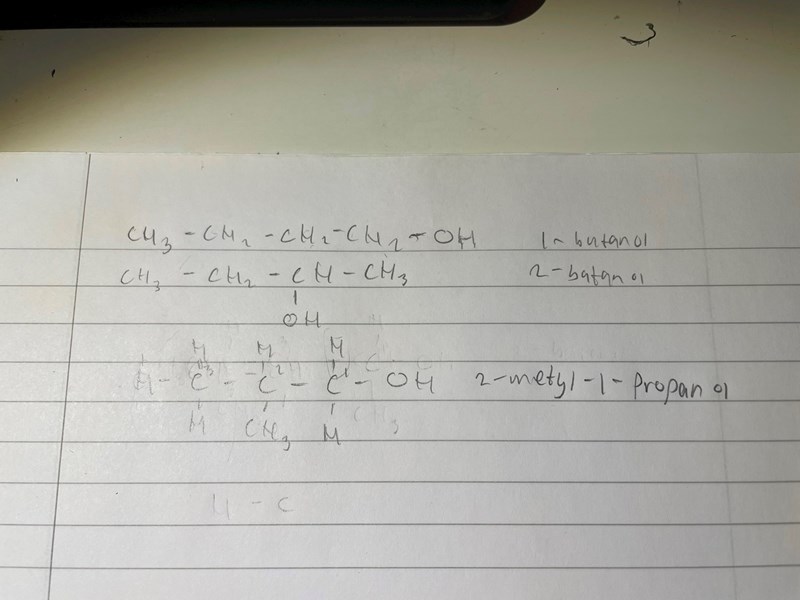 CH3 - CH2 - CH2 - CH2 - OH 1-butanol
CH3 - CH2 - CH - CH3 2-butanol
OH
H H H
H - C3 - C2 - C1 - OH 2-metyl-1-propanol
H CH3 H
H - C